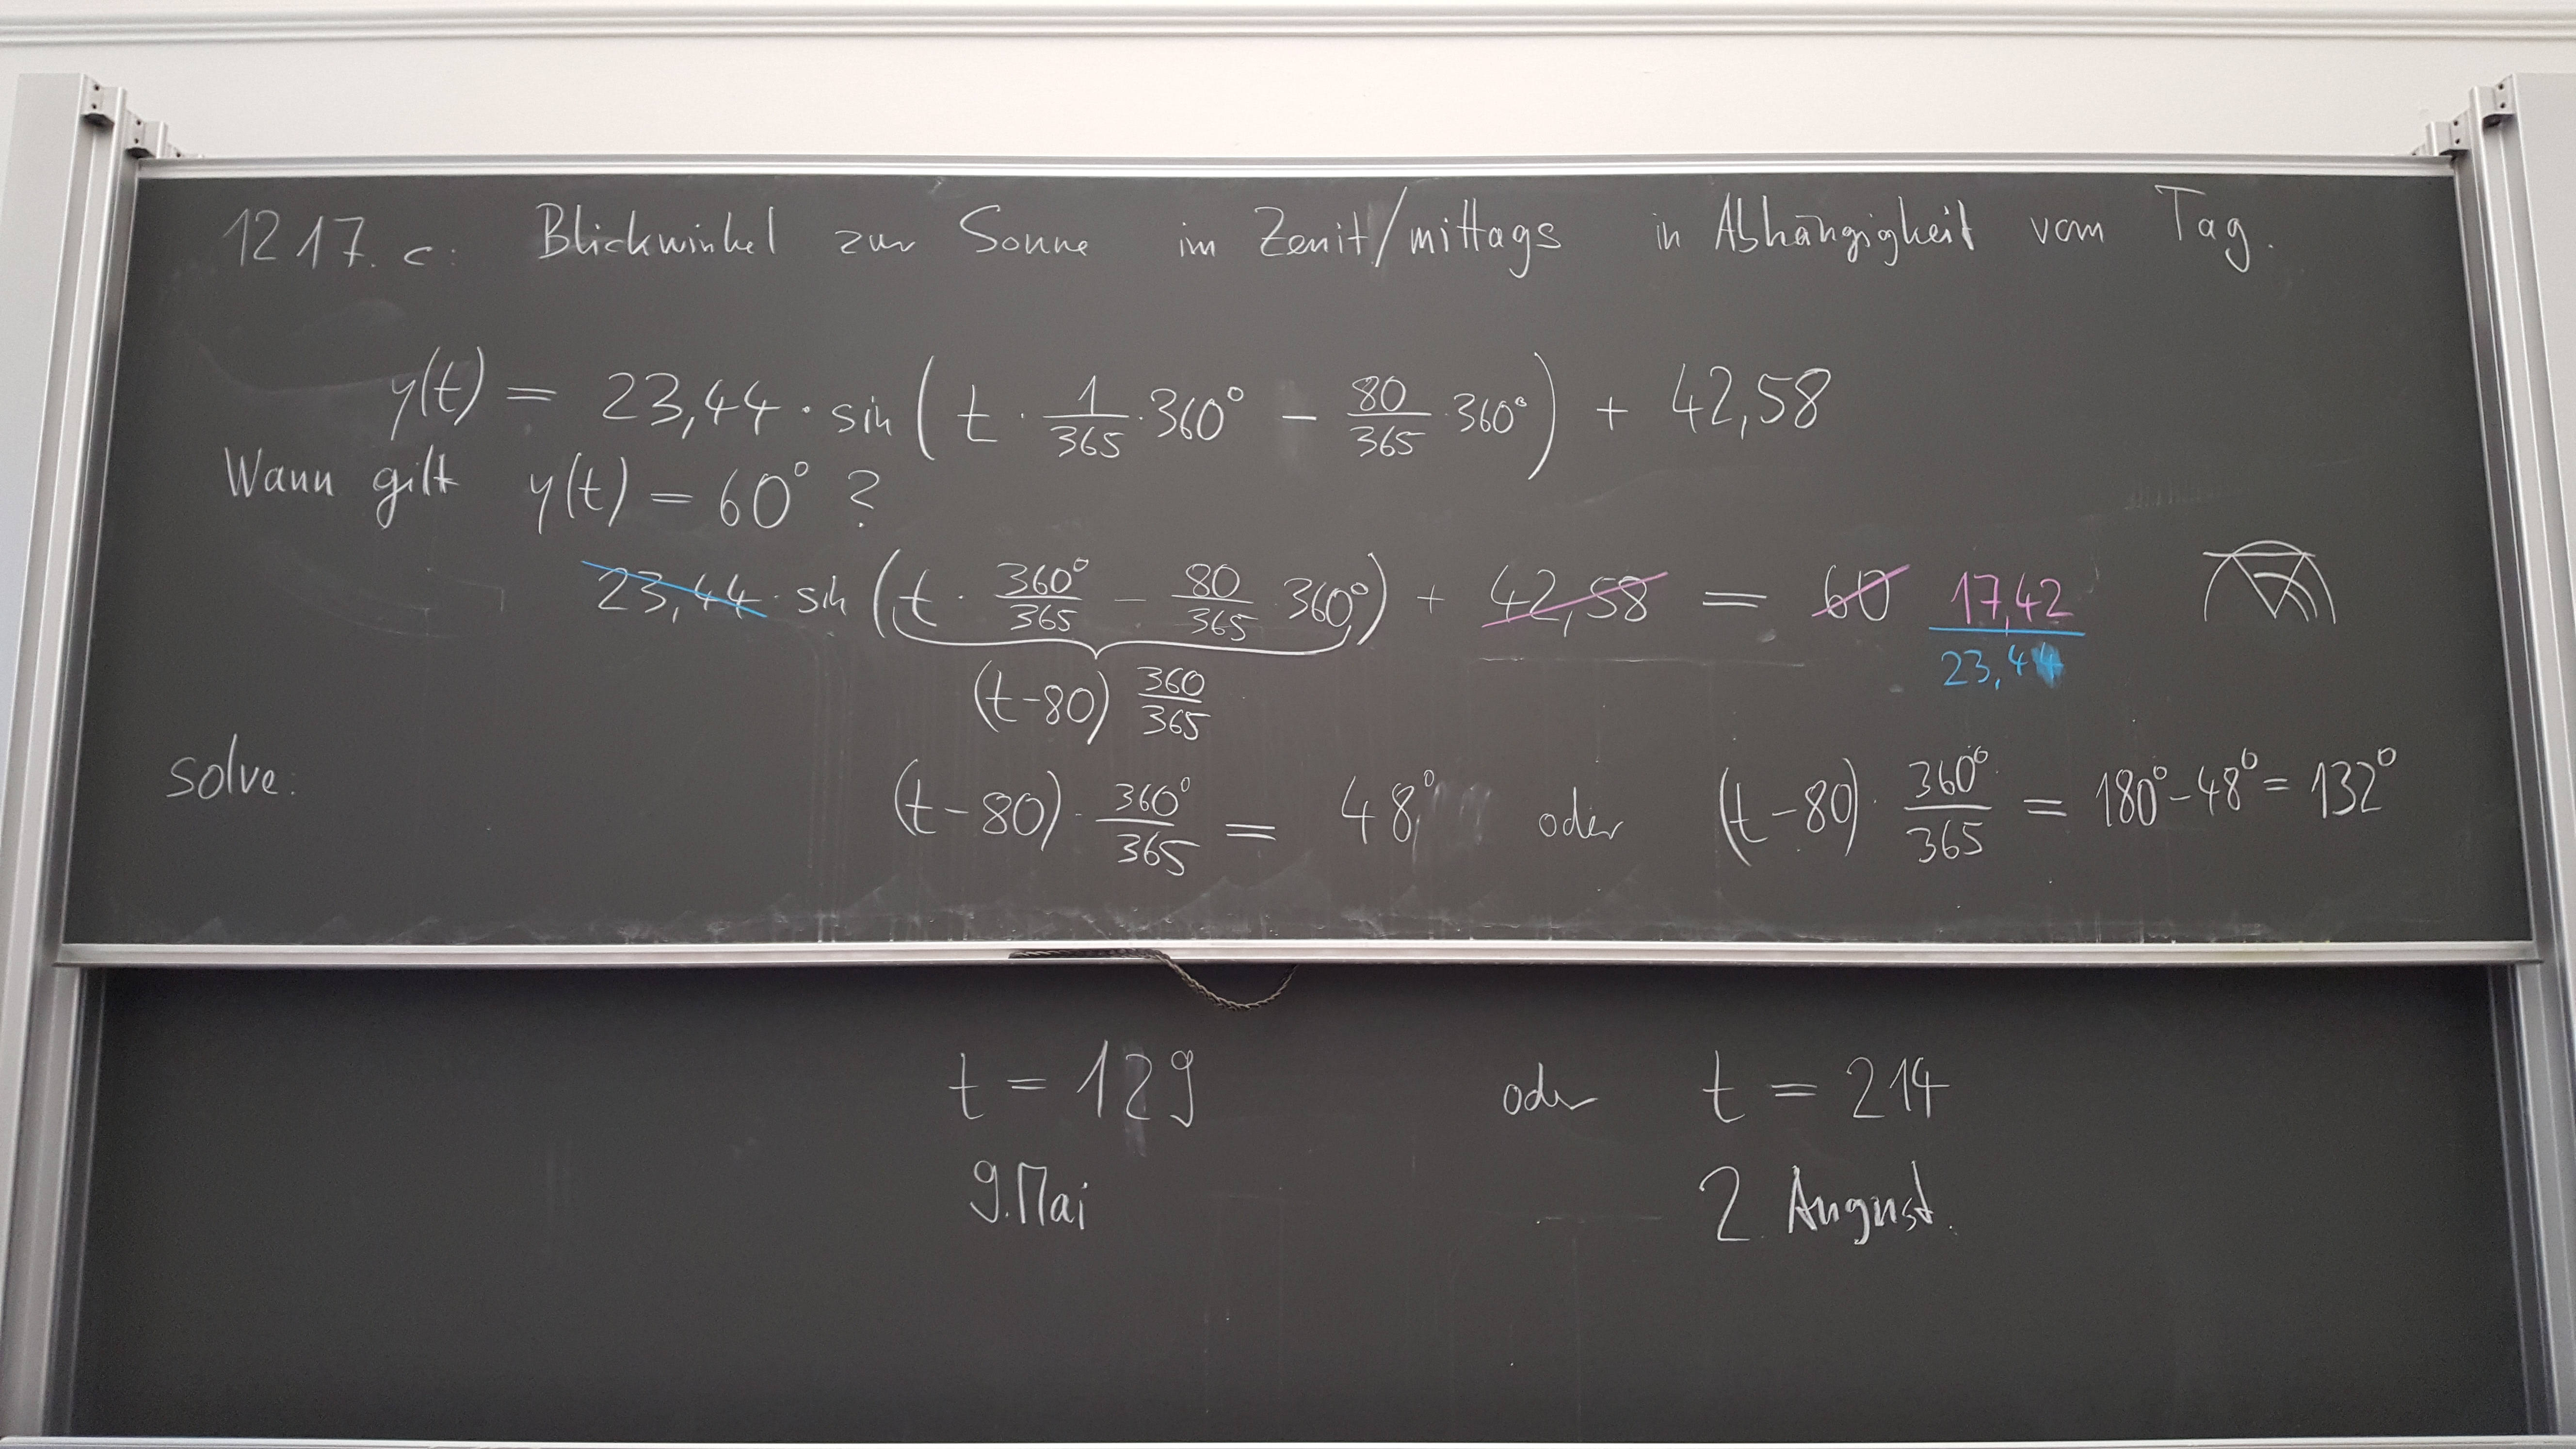 1217. c: Blickwinkel zur Sonne im Zenit/mittags in Abhängigkeit vom Tag.
y(t) = 23,44 · sin ( t · 1/365 · 360° − 80/365 · 360° ) + 42,58
Wann gilt y(t) = 60° ?
23,44 · sin ( t · 360°/365 − 80/365 · 360° ) + 42,58 = 60 17,42/23,44
(t-80) 360/365
solve: (t-80) · 360°/365 = 48° oder (t-80) · 360°/365 = 180° - 48° = 132°
t = 129 oder t = 214
9. Mai 2. August.